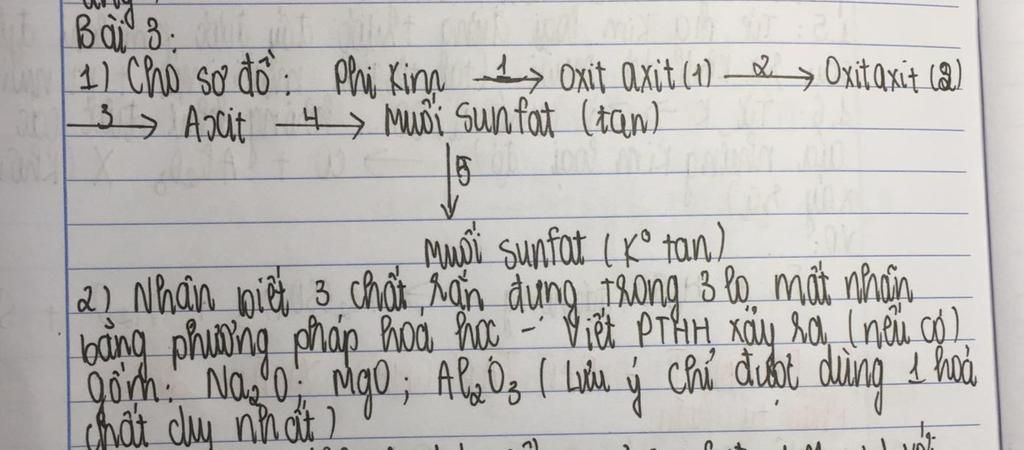 Bài 3:
1) Cho sơ đồ: Phi kim 1→ Oxit axit (1) 2→ Oxit axit (2)
3→ Axit 4→ Muối sunfat (tan)
↓5
Muối sunfat (K° tan)
2) Nhận biết 3 chất rắn đựng trong 3 lọ mất nhãn
bằng phương pháp hoá học - Viết PTHH xảy ra (nếu có)
gồm: Na₂O; MgO; Al₂O₃ (Lưu ý chỉ được dùng 1 hoá
chất duy nhất)